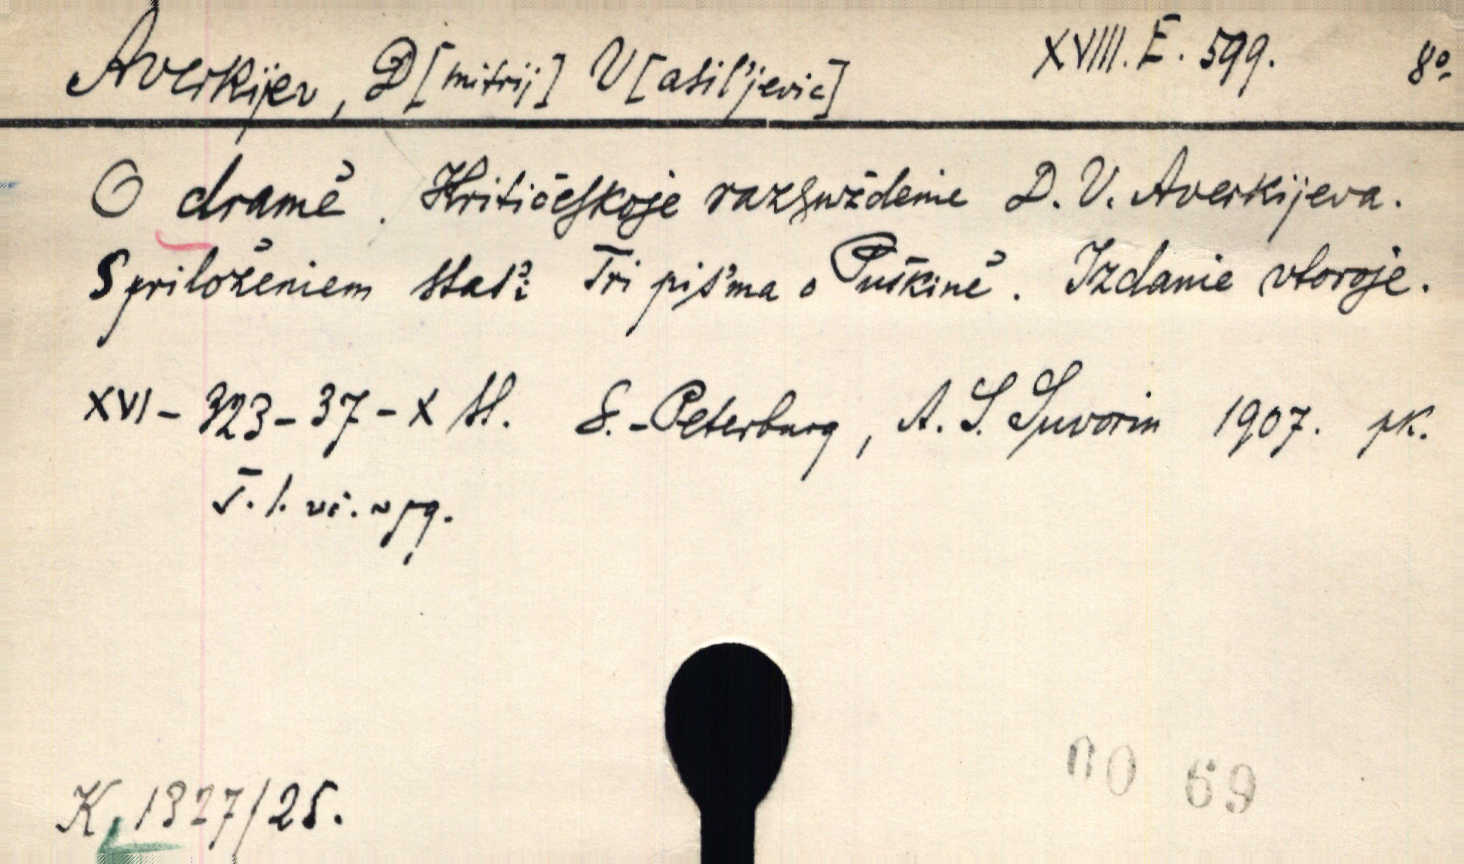 Averkijev, D[mitrij] V[asil'jevič] XVIII. E. 599. 8º.
O dramě. Kritičeskoje razsuždenie D. V. Averkijeva.
S priloženiem stat'i Tri pis'ma o Puškině. Izdanie vtoroje.
XVI – 323 – 37 – X st. S.-Peterburg, A. S. Suvorin 1907. pk.
T. l.
K. 1327/25.
69